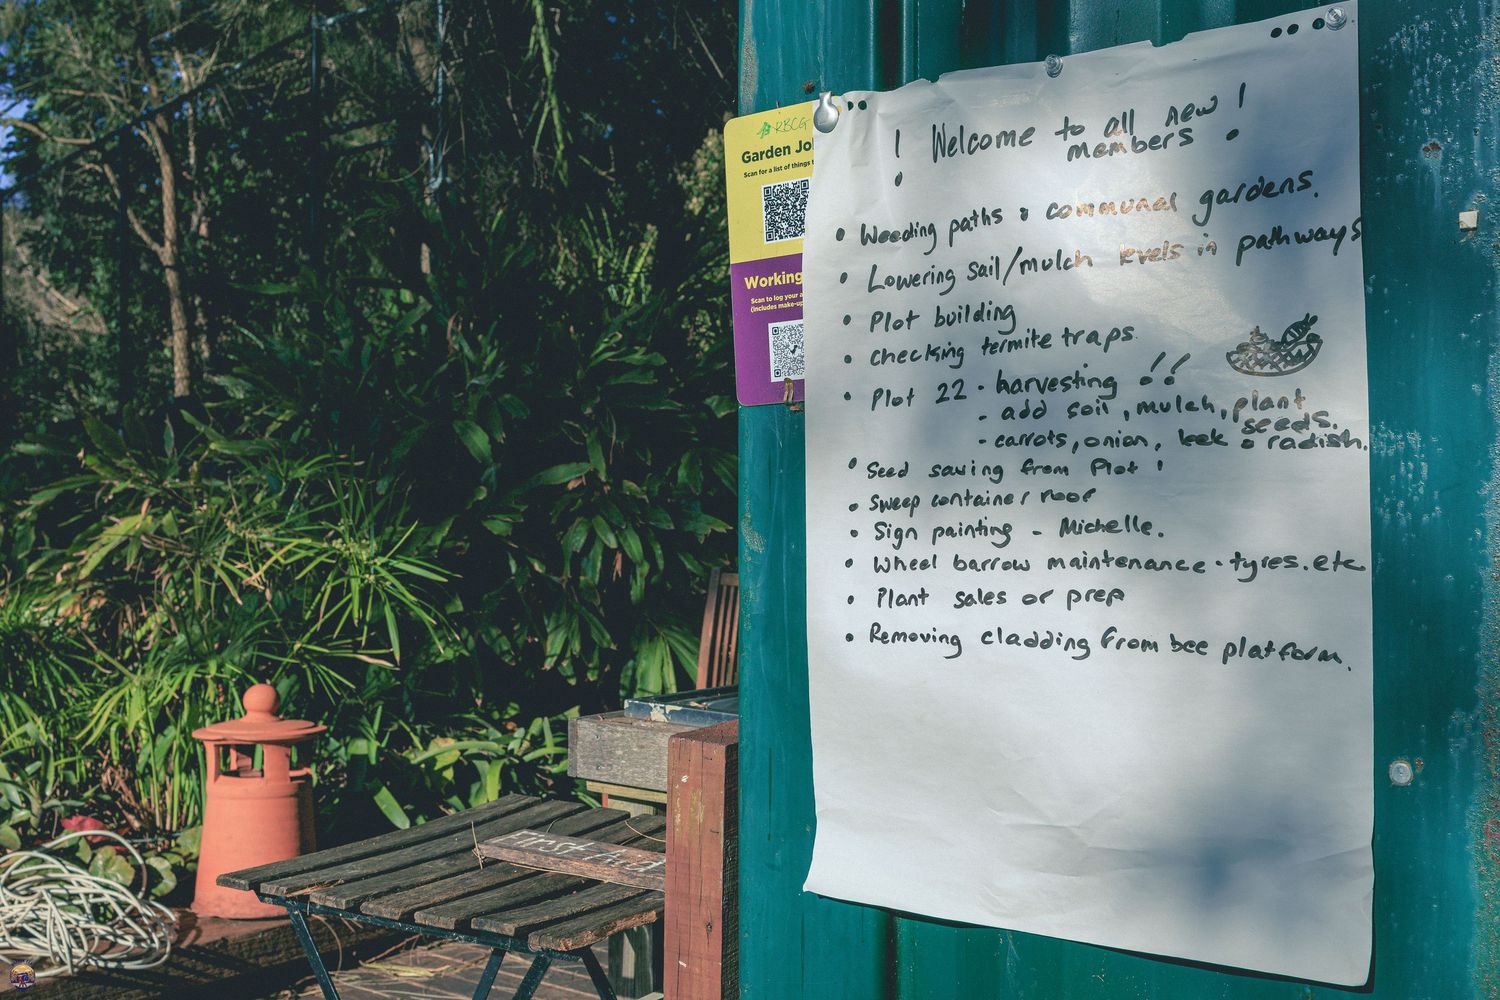 RBCG
Garden Jo
Scan for a list of things t
Working
Scan to log your a
(includes make-up
! Welcome to all new !
members
• Weeding paths & communal gardens.
• Lowering soil/mulch levels in pathways
• Plot building
• checking termite traps.
• Plot 22 - harvesting !!
- add soil, mulch, plant
seeds.
- carrots, onion, leek & radish.
• Seed saving from Plot 1
• Sweep container roof
• Sign painting - Michelle.
• Wheel barrow maintenance - tyres. etc
• Plant sales or prep
• Removing cladding from bee platform.
First Aid